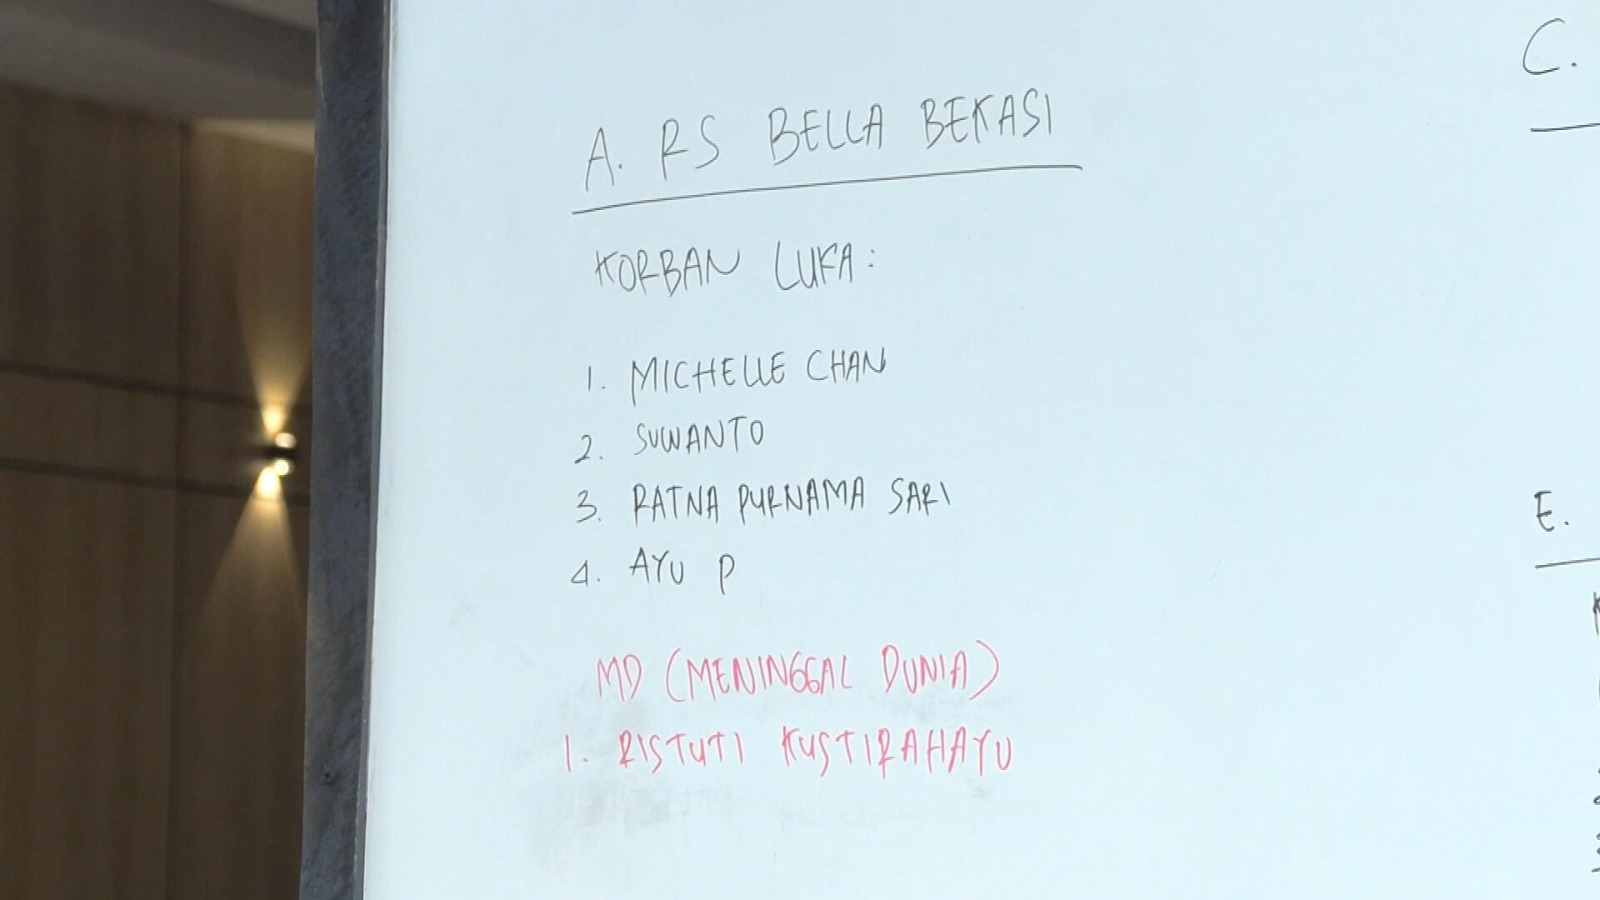 A. RS BELLA BEKASI
KORBAN LUKA:
1. MICHELLE CHAN
2. SUWANTO
3. RATNA PURNAMA SARI
4. AYU P
MD (MENINGGAL DUNIA)
1. RISTUTI KUSTIRAHAYU
C.
E.